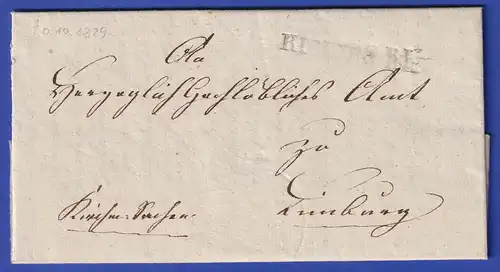 20.10.1829
An
Herzoglich Hochlöbliches Amt
zu
Kirchen Sachen. Limburg